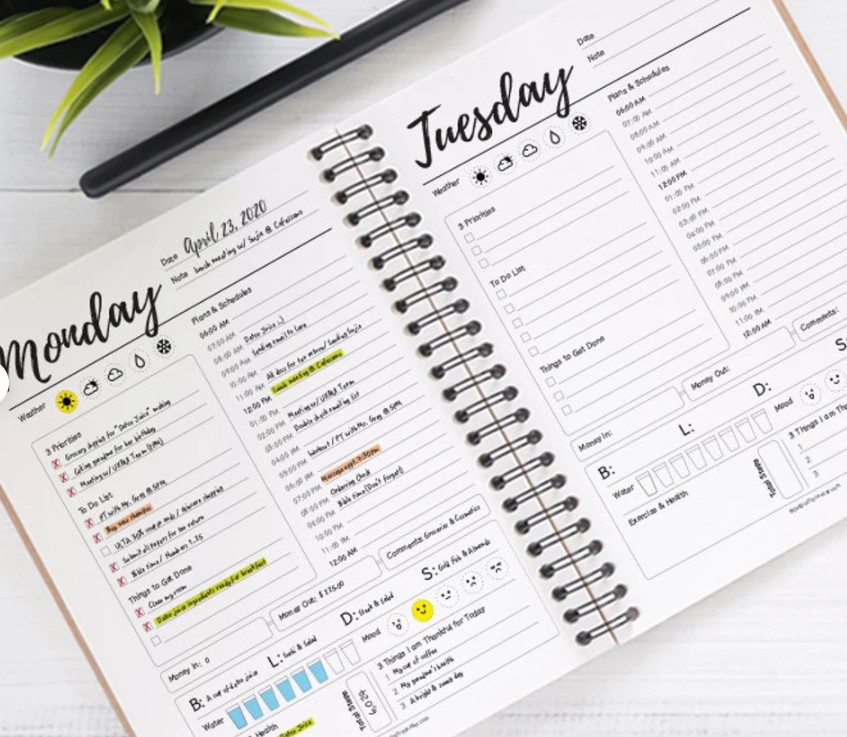 Monday
Date April 23, 2020
Note lunch meeting w/ Susie @ Cafezzans
Weather
3 Priorities
Grocery shopping for "Detox Juice" making
Calling grandma for her birthday
Meeting w/ UX/UI Team (2PM)
To Do List
PT with Mr. Greg @ 5PM
Buy new shampoo
ULTA 30% coupon ends / skincare shopping
Submit all papers for tax return
Bible time / Numbers 1-25
Things to Get Done
Clean my room
Detox juice ingredients ready for breakfast
Plans & Schedules
06:00 AM
07:00 AM Detox Juice :)
08:00 AM Sending email to
09:00 AM
10:00 AM All docs for tax return/ Sending
11:00 AM Lunch meeting @ Cafezzans
12:00 PM
01:00 PM Meeting w/ UX/UI Team
02:00 PM Double check emailing list
03:00 PM
04:00 PM Workout / PT with Mr. Greg @ 5PM
05:00 PM
06:00 PM Massage appt. 7:30pm
07:00 PM Ordering Check
08:00 PM Bible time (Don't forget)
09:00 PM
10:00 PM
11:00 PM
12:00 AM
Money In: 0
Money Out: $
Comments: Groceries & Cosmetics
B: A cup of detox juice
L: Sushi & Salad
D: Steak & Salad
S: Gold Fish & Almonds
Water
Mood
Total Steps
3 Things I am Thankful for Today
1 My cup of coffee
2 My grandma's health
3 A bright & sunny day
Health
Detox Juice
Tuesday
Date
Note
Weather
3 Priorities
To Do List
Things to Get Done
Plans & Schedules
06:00 AM
07:00 AM
08:00 AM
09:00 AM
10:00 AM
11:00 AM
12:00 PM
01:00 PM
02:00 PM
03:00 PM
04:00 PM
05:00 PM
06:00 PM
07:00 PM
08:00 PM
09:00 PM
10:00 PM
11:00 PM
12:00 AM
Money In:
Money Out:
Comments:
B:
L:
D:
S
Water
Mood
Total Steps
3 Things I am Than
1
2
3
Exercise & Health